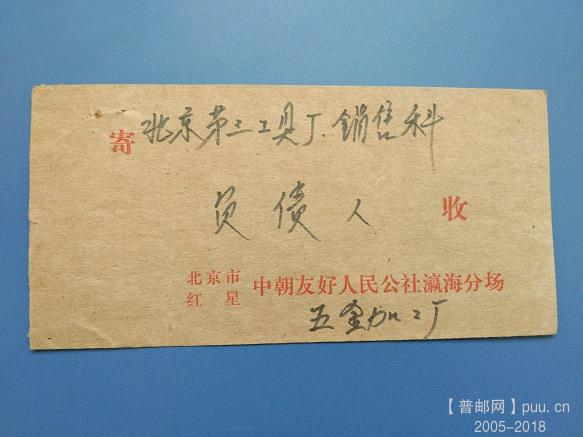 寄 北京第三工具厂.销售科
负债人 收
北京市
红星 中朝友好人民公社瀛海分场
五金加工厂
【普邮网】puu.cn
2005-2018